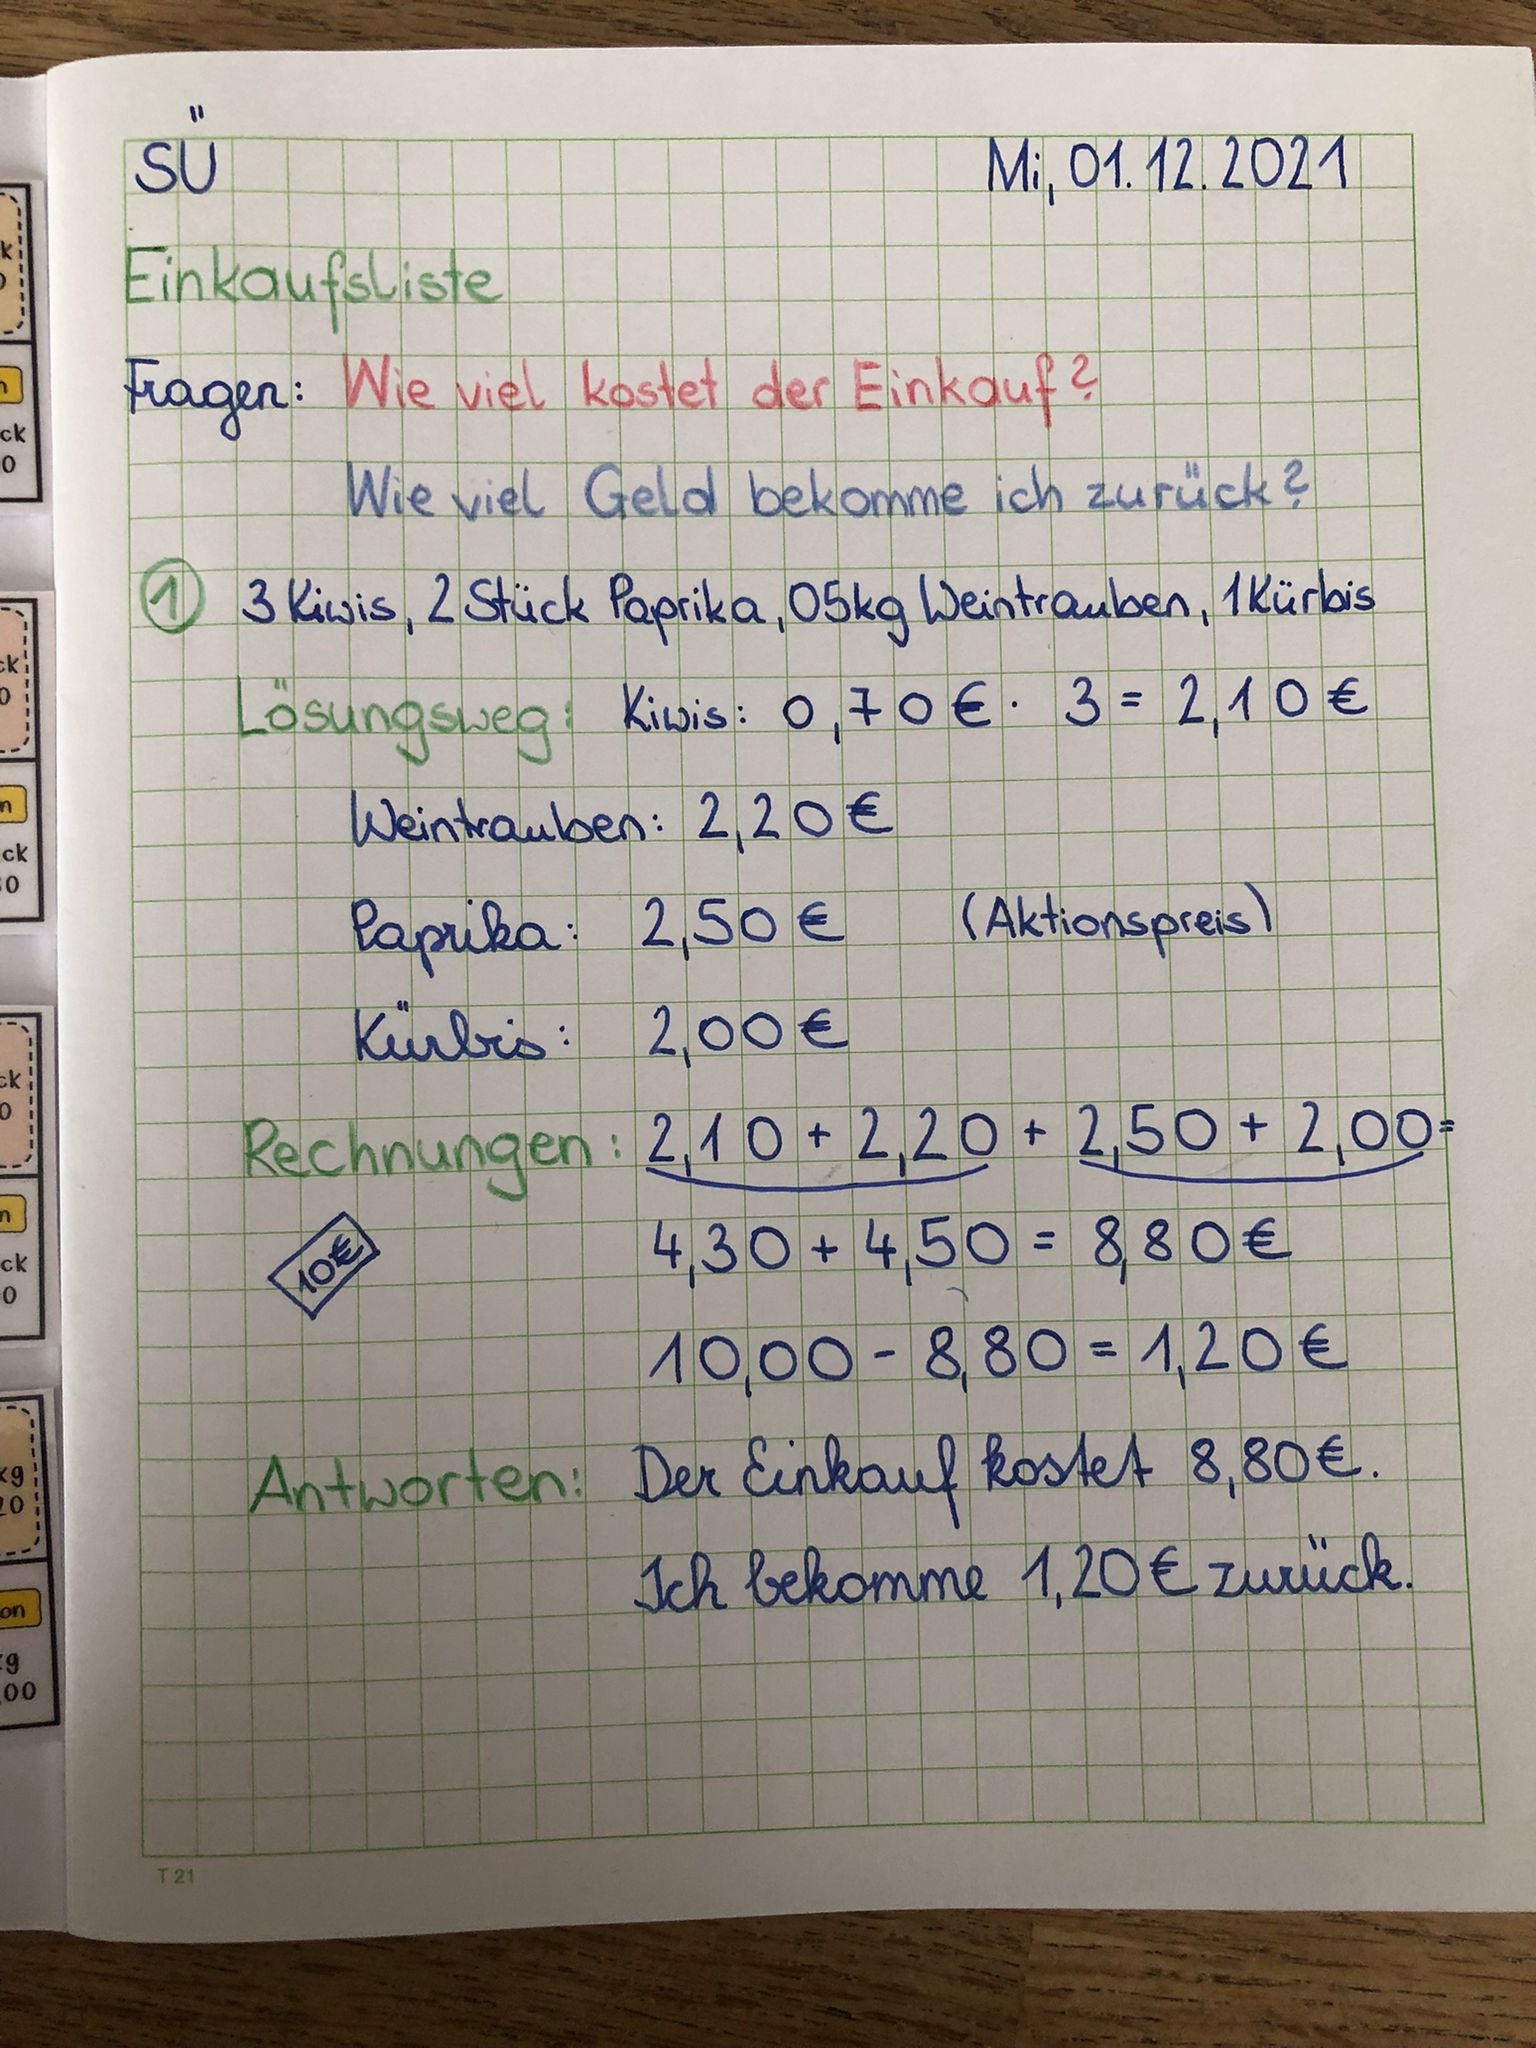 SÜ Mi, 01.12.2021
Einkaufsliste
Fragen: Wie viel kostet der Einkauf?
Wie viel Geld bekomme ich zurück?
1 3 Kiwis, 2 Stück Paprika, 05kg Weintrauben, 1 Kürbis
Lösungsweg: Kiwis: 0,70€ · 3 = 2,10€
Weintrauben: 2,20€
Paprika: 2,50€ (Aktionspreis)
Kürbis: 2,00€
Rechnungen: 2,10 + 2,20 + 2,50 + 2,00=
10€ 4,30 + 4,50 = 8,80€
10,00 - 8,80 = 1,20€
Antworten: Der Einkauf kostet 8,80€.
Ich bekomme 1,20€ zurück.
T 21